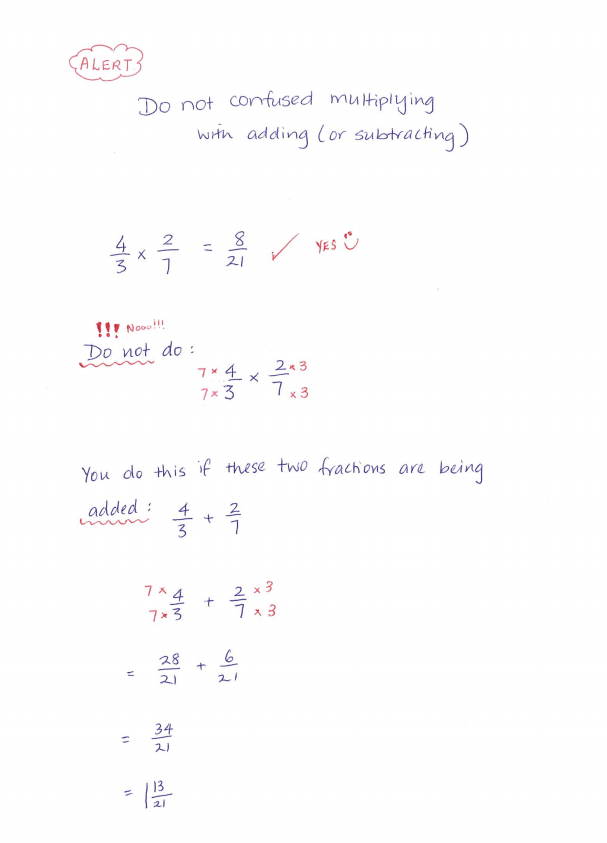 ALERT
Do not confused multiplying
with adding (or subtracting)
4/3 × 2/7 = 8/21 ✓ YES
!!! Nooo!!!
Do not do :
7 × 4/7 × 3 × 2 × 3/7 × 3
You do this if these two fractions are being
added : 4/3 + 2/7
7 × 4/7 × 3 + 2 × 3/7 × 3
= 28/21 + 6/21
= 34/21
= 1 13/21